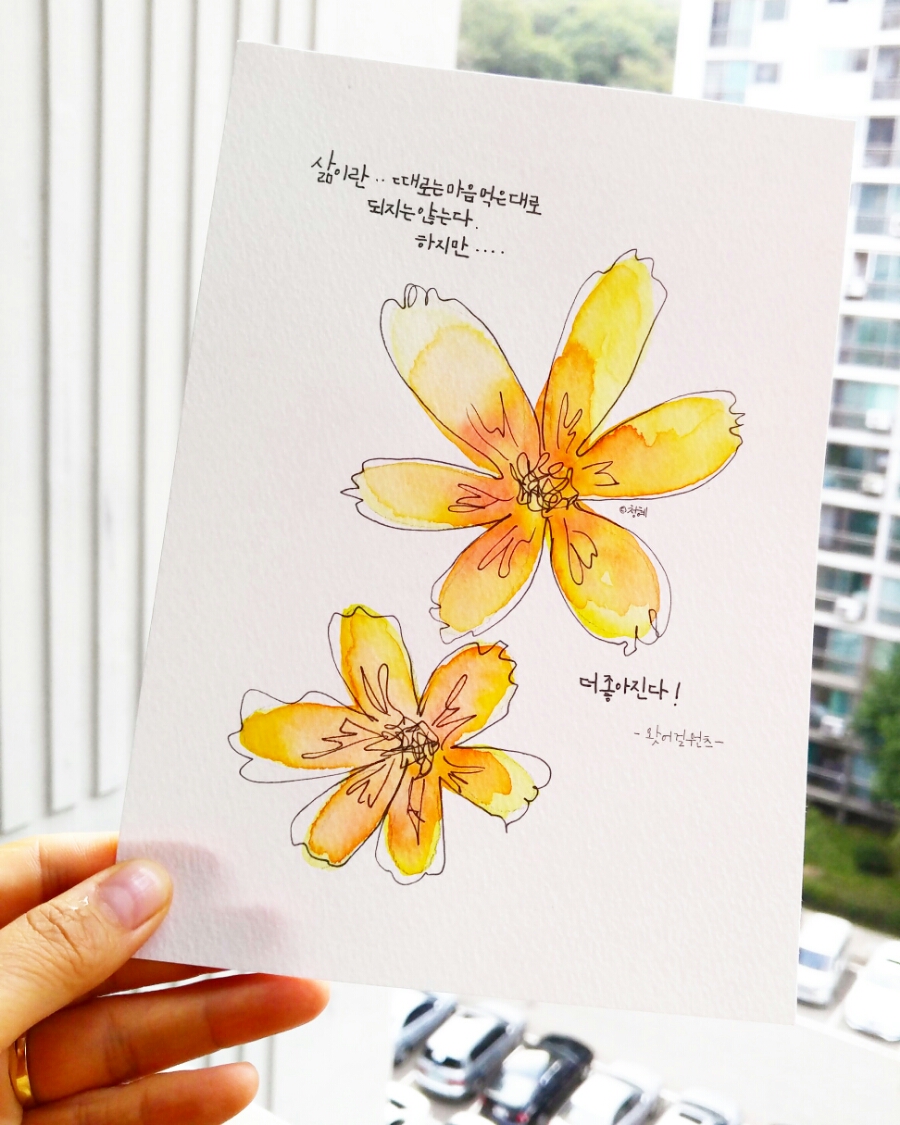 삶이란.. 때로는 마음먹은대로
되지는 않는다.
하지만....
©청혜
더 좋아진다!
-왓어걸원츠-